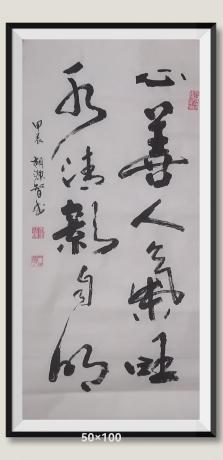 心善人氣旺
水清影自明
甲辰 胡漢智書
50×100